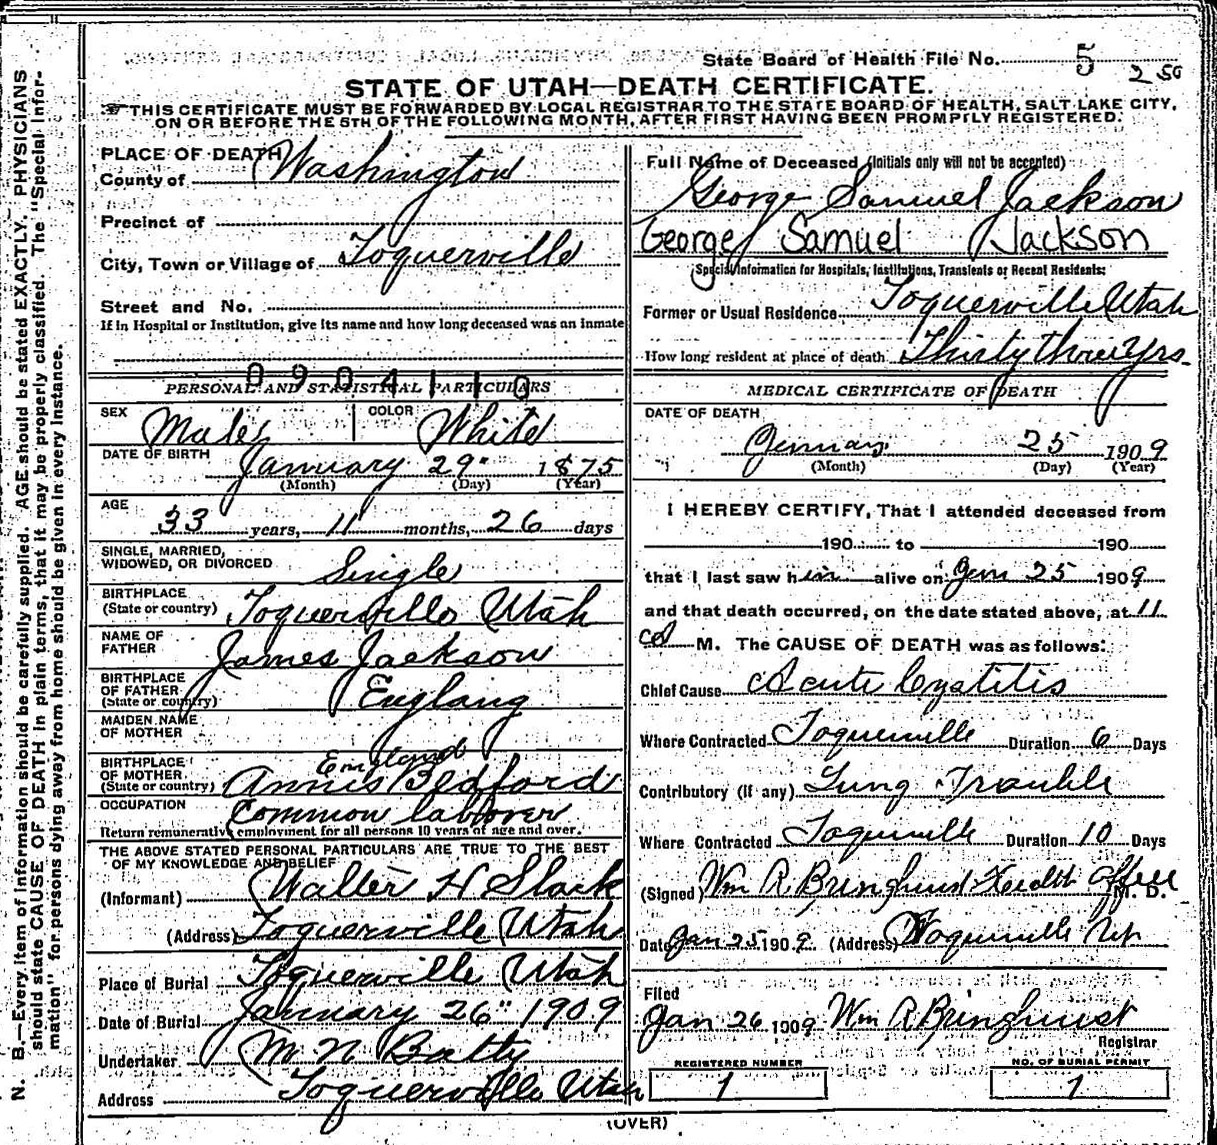 State Board of Health File No. 5 250
STATE OF UTAH—DEATH CERTIFICATE.
THIS CERTIFICATE MUST BE FORWARDED BY LOCAL REGISTRAR TO THE STATE BOARD OF HEALTH, SALT LAKE CITY,
ON OR BEFORE THE 5TH OF THE FOLLOWING MONTH, AFTER FIRST HAVING BEEN PROMPTLY REGISTERED.
PLACE OF DEATH
County of Washington
Precinct of
City, Town or Village of Toquerville
Street and No.
If in Hospital or Institution, give its name and how long deceased was an inmate
0904110
PERSONAL AND STATISTICAL PARTICULARS
SEX Male COLOR White
DATE OF BIRTH January 29" 1875
(Month) (Day) (Year)
AGE
33 years, 11 months, 26 days
SINGLE, MARRIED,
WIDOWED, OR DIVORCED Single
BIRTHPLACE
(State or country) Toquerville Utah
NAME OF
FATHER James Jackson
BIRTHPLACE
OF FATHER
(State or country) England
MAIDEN NAME
OF MOTHER
BIRTHPLACE England
OF MOTHER
(State or country) Annis Bedford
OCCUPATION Common laborer
Return remunerative employment for all persons 10 years of age and over.
THE ABOVE STATED PERSONAL PARTICULARS ARE TRUE TO THE BEST
OF MY KNOWLEDGE AND BELIEF
(Informant) Walter H Slack
(Address) Toquerville Utah
Place of Burial Toquerville Utah
Date of Burial January 26" 1909
Undertaker M N Batty
Address Toquerville Utah
Full Name of Deceased (Initials only will not be accepted)
George Samuel Jackson
George Samuel Jackson
Special Information for Hospitals, Institutions, Transients or Recent Residents:
Former or Usual Residence Toquerville Utah
How long resident at place of death Thirty three Yrs.
MEDICAL CERTIFICATE OF DEATH
DATE OF DEATH
January 25 1909
(Month) (Day) (Year)
I HEREBY CERTIFY, That I attended deceased from
190 to 190
that I last saw him alive on Jan 25 1909
and that death occurred, on the date stated above, at 11
a M. The CAUSE OF DEATH was as follows:
Chief Cause Acute Cystitis
Where Contracted Toquerville Duration 6 Days
Contributory (if any) Lung Trouble
Where Contracted Toquerville Duration 10 Days
(Signed) Wm R Bringhurst Health Officer M. D.
Date Jan 25 1909. (Address) Toquerville Ut
Filed
Jan 26 1909 Wm R Bringhurst
Registrar
REGISTERED NUMBER NO. OF BURIAL PERMIT
1 1
(OVER)
N. B.—Every item of information should be carefully supplied. AGE should be stated EXACTLY. PHYSICIANS
should state CAUSE OF DEATH in plain terms, that it may be properly classified. The "Special Infor-
mation" for persons dying away from home should be given in every instance.